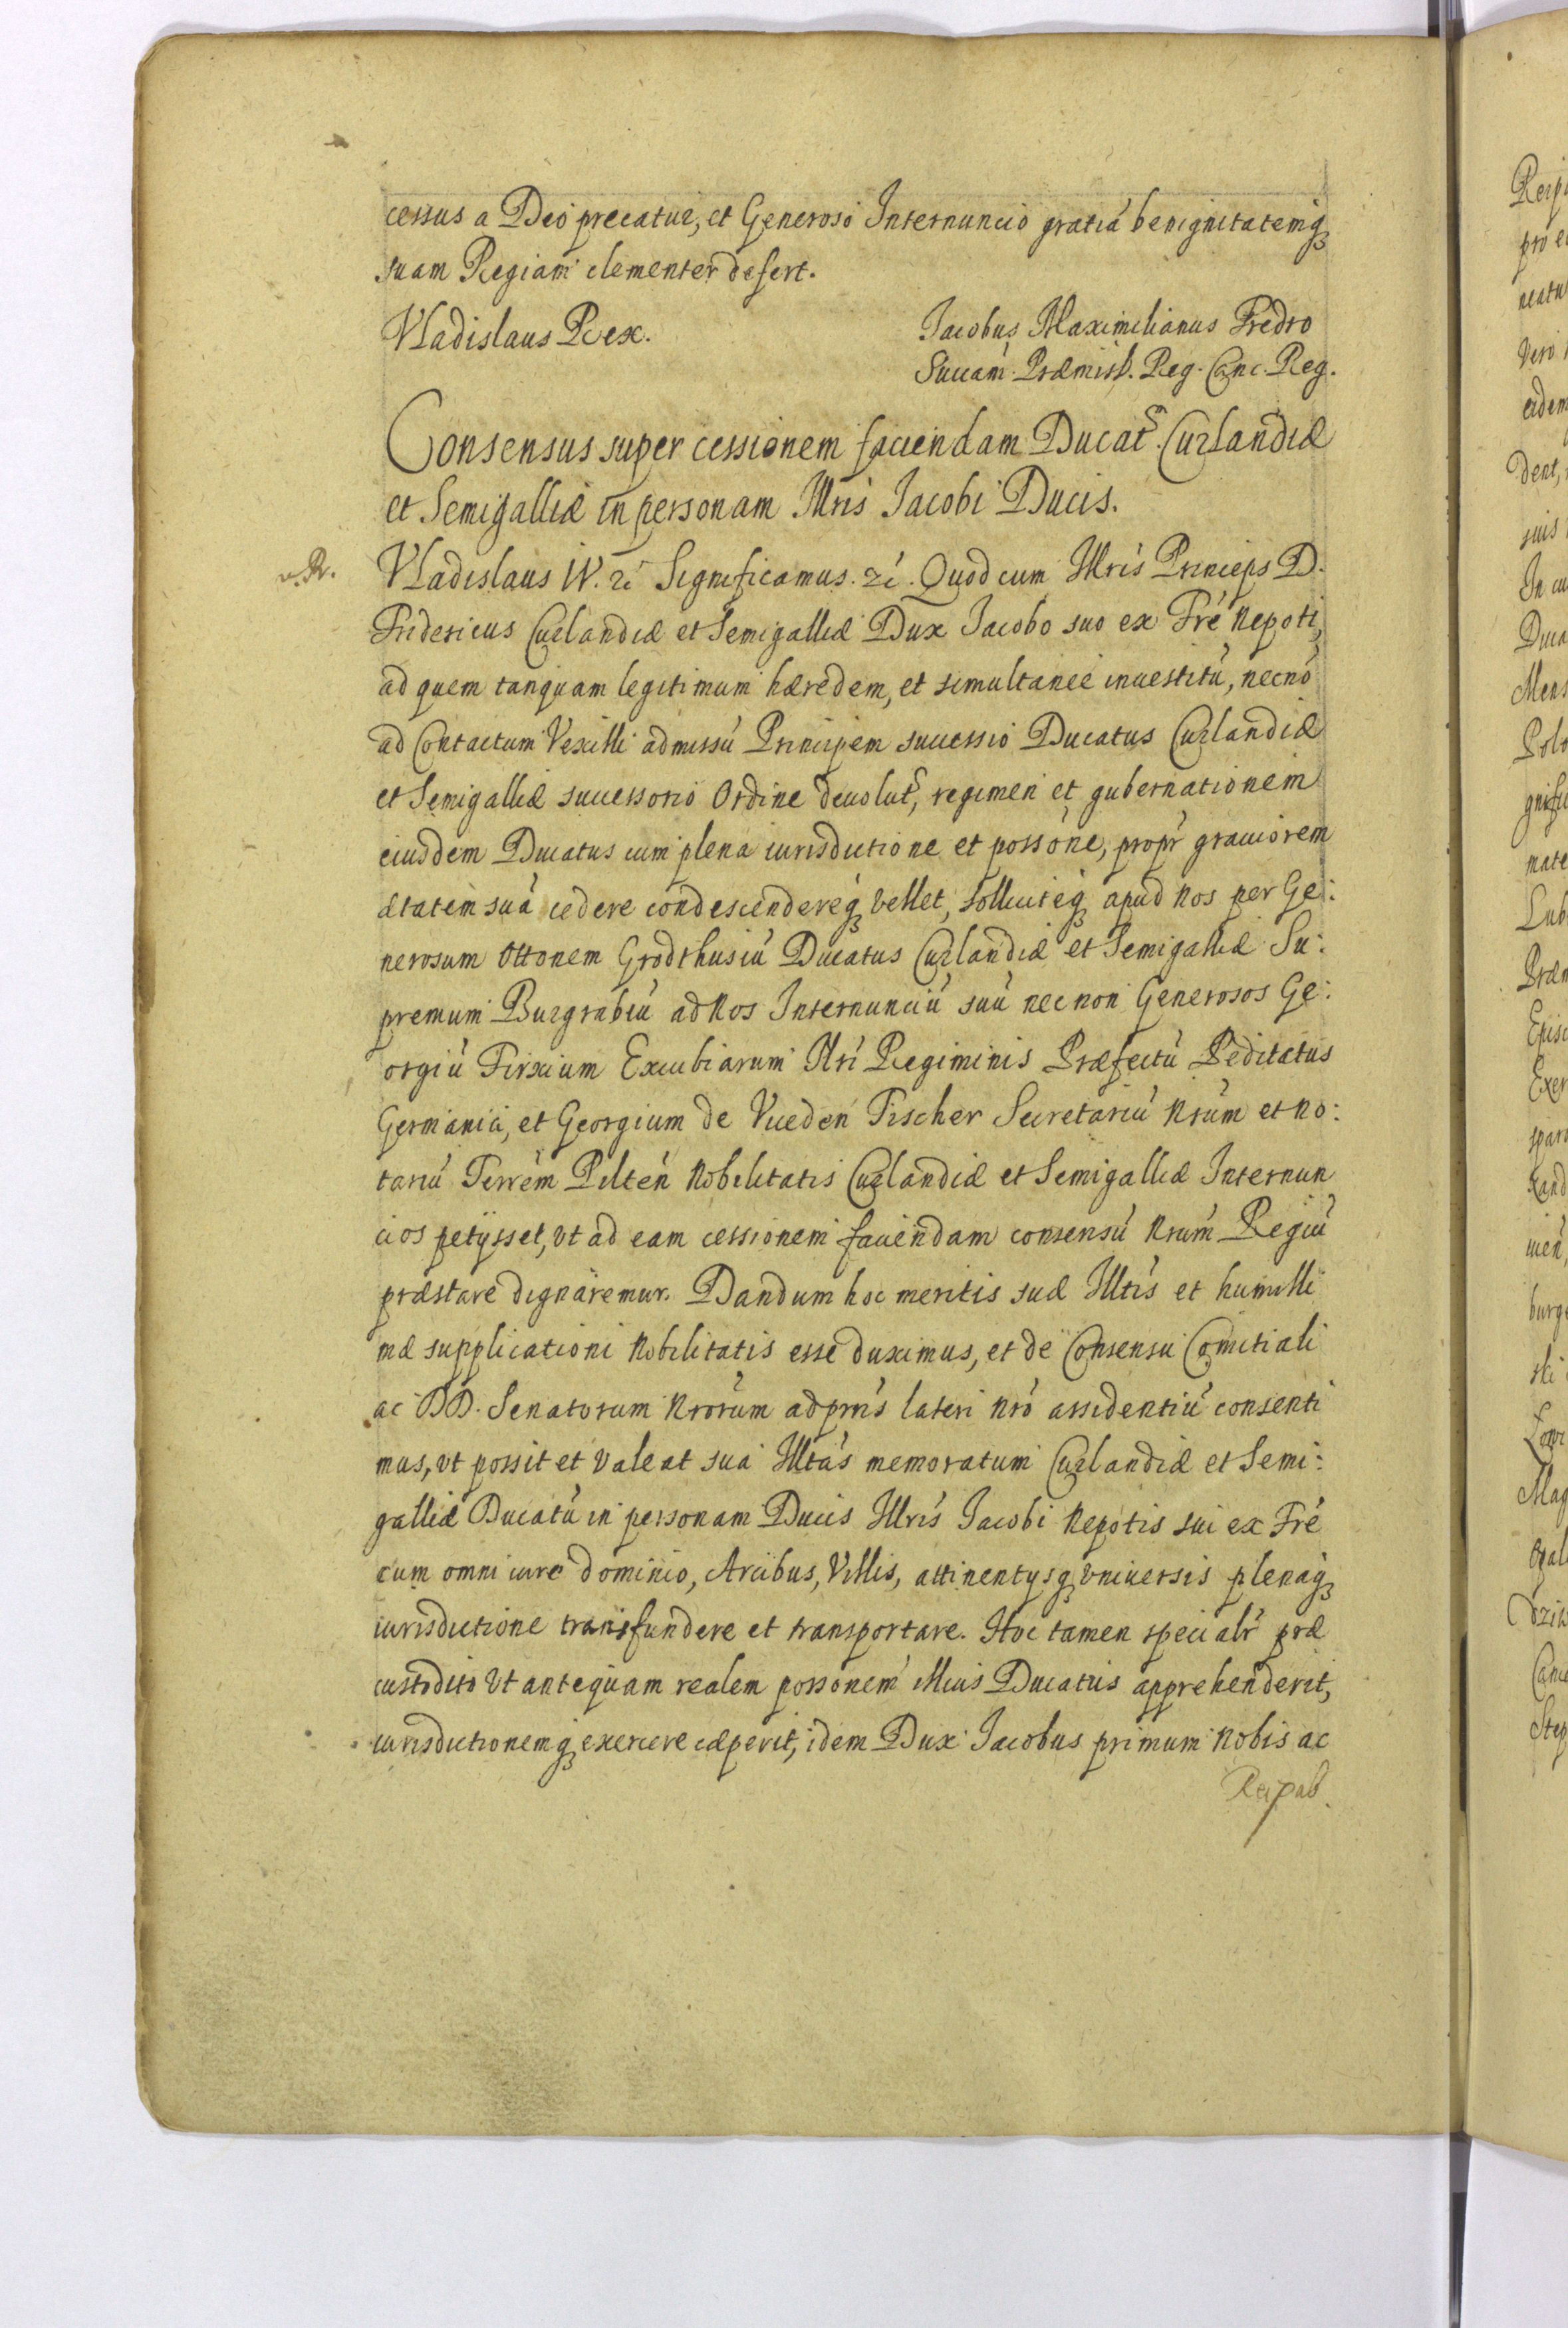 cessus a Deo precatur, et Generoso Internuncio gratiá benignitatemq
suam Regiam clementer defert.
Vladislaus Rex.
Jacobus Maximilianus Fredro
Succam. Præmisl. Reg. Canc. Reg.
Consensus super cessionem faciendam Ducats. Curlandiæ
et Semigalliæ in personam Illris Jacobi Ducis.
Vladislaus IV. Significamus. Quod cum Illris Princeps D.
Fridericus Curlandiæ et Semigalliæ Dux Jacobo suo ex Fré Nepoti,
ad quem tanquam legitimum hæredem, et simultanee inuestitú, necnó
ad Contactum Vexilli admissú Principem successio Ducatus Curlandiæ
et Semigalliæ successorio Ordine deuoluts, regimen et gubernationem
eiusdem Ducatus cum plena iurisdictione et possóne, propr grauiorem
ætatem suá cedere condescendereq vellet, solliciteq apud Nos per Ge:
nerosum Ottonem Grodthusiú Ducatus Curlandiæ et Semigalliæ Su:
premum Burgrabiú ad Nos Internunciú suú necnon Generosos Ge:
orgiú Firxium Excubiarum Nri Regiminis Præfectú Peditatus
Germanici, et Georgium de Vueden Fischer Secretariú Nrúm et No:
tariú Terrém Piltén Nobilitatis Curlandiæ et Semigalliæ Internun
cios petysset, vt ad eam cessionem faciendam consensú Nrum Regiú
præstare dignaremur. Dandum hoc meritis suæ Illtis et humilli
mæ supplicationi Nobilitatis esse duximus, et de Consensu Comitiali
ac DD. Senatorum Nrorúm ad prns lateri Nró assidentiú consenti
mus, vt possit et valeat sua Illtás memoratum Curlandiæ et Semi:
galliæ Ducatú in personam Ducis Illris Jacobi Nepotis sui ex Fré
cum omni iure dominio, Arcibus, Villis, attinentysq vniuersis plenaq
iurisdictione transfundere et transportare. Hoc tamen specialr præ
custodito Vt antequam realem possonem illius Ducatus apprehenderit,
iurisdictionemq exercere cæperit, idem Dux Jacobus primum Nobis ac
Reipub.